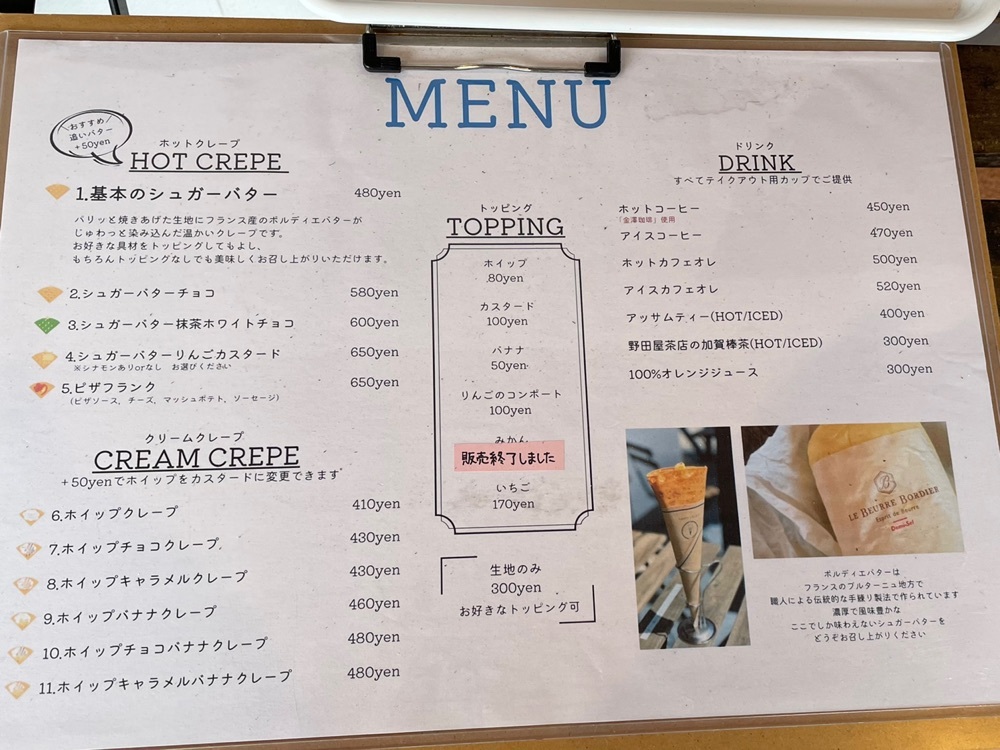 MENU
おすすめ
追いバター
+50yen
ホットクレープ
HOT CREPE
1.基本のシュガーバター 480yen
パリッと焼きあげた生地にフランス産のボルディエバターが
じゅわっと染み込んだ温かいクレープです。
お好きな具材をトッピングしてもよし、
もちろんトッピングなしでも美味しくお召し上がりいただけます。
2.シュガーバターチョコ 580yen
3.シュガーバター抹茶ホワイトチョコ 600yen
4.シュガーバターりんごカスタード 650yen
※シナモンありorなし お選びください
5.ピザフランク 650yen
(ピザソース、チーズ、マッシュポテト、ソーセージ)
クリームクレープ
CREAM CREPE
+50yenでホイップをカスタードに変更できます
6.ホイップクレープ 410yen
7.ホイップチョコクレープ 430yen
8.ホイップキャラメルクレープ 430yen
9.ホイップバナナクレープ 460yen
10.ホイップチョコバナナクレープ 480yen
11.ホイップキャラメルバナナクレープ 480yen
トッピング
TOPPING
ホイップ
80yen
カスタード
100yen
バナナ
50yen
りんごのコンポート
100yen
みかん
販売終了しました
いちご
170yen
生地のみ
300yen
お好きなトッピング可
ドリンク
DRINK
すべてテイクアウト用カップでご提供
ホットコーヒー 450yen
「金澤珈琲」使用
アイスコーヒー 470yen
ホットカフェオレ 500yen
アイスカフェオレ 520yen
アッサムティー(HOT/ICED) 400yen
野田屋茶店の加賀棒茶(HOT/ICED) 300yen
100%オレンジジュース 300yen
LE BEURRE BORDIER
Esprit de Beurre
Demi-Sel
ボルディエバターは
フランスのブルターニュ地方で
職人による伝統的な手練り製法で作られています
濃厚で風味豊かな
ここでしか味わえないシュガーバターを
どうぞお召し上がりください